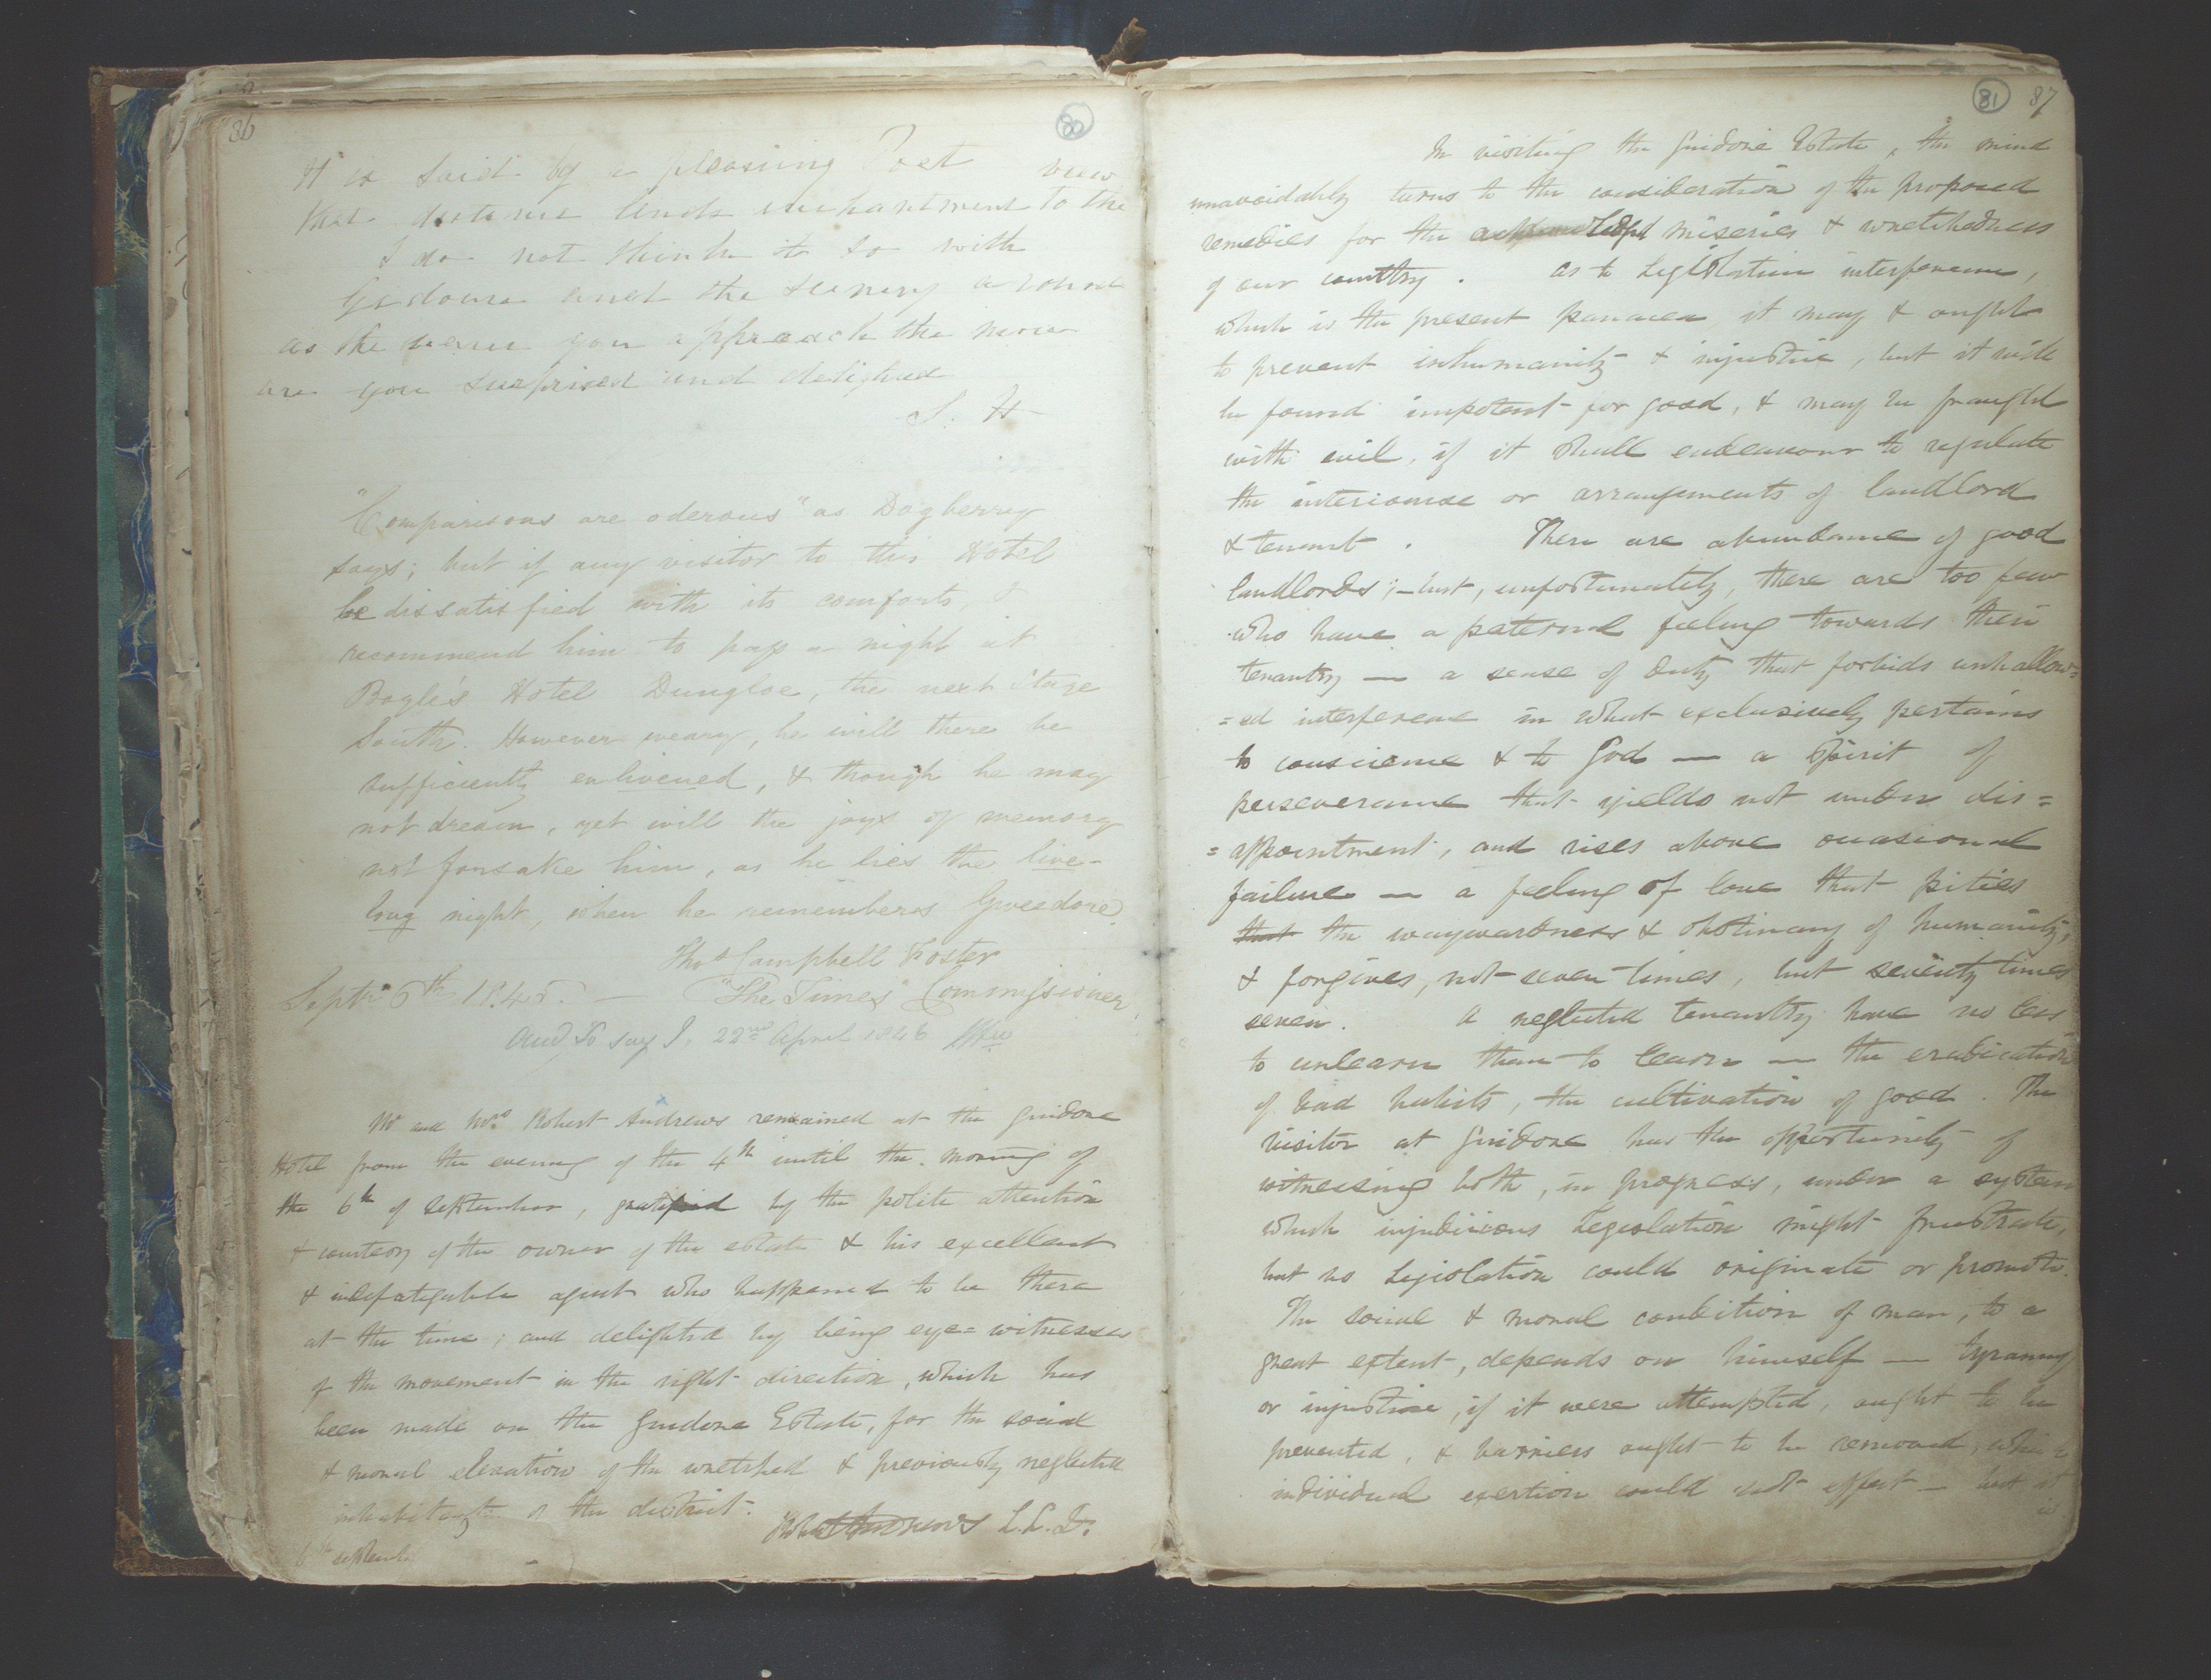 86
80
It is said by a pleasing Poet
that distance lends enchantment to the
view
I do not think it so with
Gidoure and the scenery around
as the nearer you approach the more
are you surprised and delighted
S. H
"Comparisons are oderous" as Dogberry
says; but if any visitor to this Hotel
be dissatisfied with its comforts, I
recommend him to pass a night at
Bogle's Hotel Dungloe, the next stage
South. However weary, he will there be
sufficiently enlivened, & though he may
not dream, yet will the joys of memory
not forsake him, as he lies the live-
long night, when he remembers Gweedore.
Thos Campbell Foster
Septr 6th 1845. — "The Times" Commissioner
And so say I, 22nd April 1846
Mr and Mrs Robert Andrews remained at the Guidore
Hotel from the evening of the 4th until the morning of
the 6th of September, gratified by the polite attention
& courtesy of the owner of the estate & his excellent
& indefatigable agent who happened to be there
at the time; and delighted by being eye=witnesses
of the movement in the right direction, which has
been made on the Guidore Estate, for the social
& moral elevation of the wretched & previously neglected
inhabitants of the district.
Robert Andrews L.L.D.
6th September
81 87
In visiting the Guidore Estate, the mind
unavoidably turns to the consideration of the proposed
remedies for the acknowledged miseries & wretchedness
of our country. As to Legislative interference,
which is the present panacea it may & ought
to prevent inhumanity & injustice, but it will
be found impotent for good, & may be fraught
with evil, if it shall endeavour to regulate
the intercourse or arrangements of landlord
& tenant. There are abundance of good
landlords;—but, unfortunately, there are too few
who have a paternal feeling towards their
tenantry — a sense of duty that forbids unhallow=
=ed interference in what exclusively pertains
to conscience & to God — a spirit of
perseverance that yields not under dis=
=appointment, and rises above occasional
failure — a feeling of love that pities
that the waywardness & obstinacy of humanity,
& forgives, not seven times, but seventy times
seven. A neglected tenantry have no less
to unlearn than to learn — the eradication
of bad habits, the cultivation of good. The
visitor at Guidore has the opportunity of
witnessing both, in progress, under a system
which injudicious Legislation might frustrate,
but no Legislation could originate or promote.
The social & moral condition of man, to a
great extent, depends on himself — tyranny
or injustice, if it were attempted, ought to be
prevented, & barriers ought to be removed, which
individual exertion could not effect — but it
is